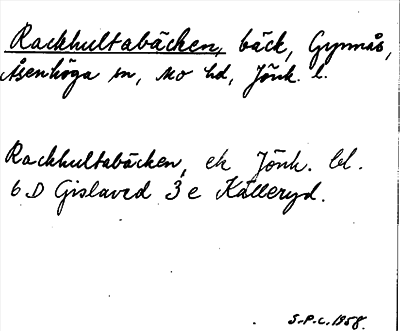 Rackhultabäcken, bäck, Gynnås,
Åsenhöga sn, Mo hd, Jönk. l.
Rackhultabäcken, ek Jönk. bl.
6 D Gislaved 3 e Kålleryd.
S.P.C. 1958.